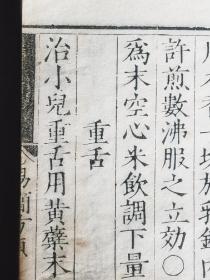 許煎數沸服之立効〇
爲末空心米飲調下量
重舌
治小兒重舌用黃蘗末
易簡方